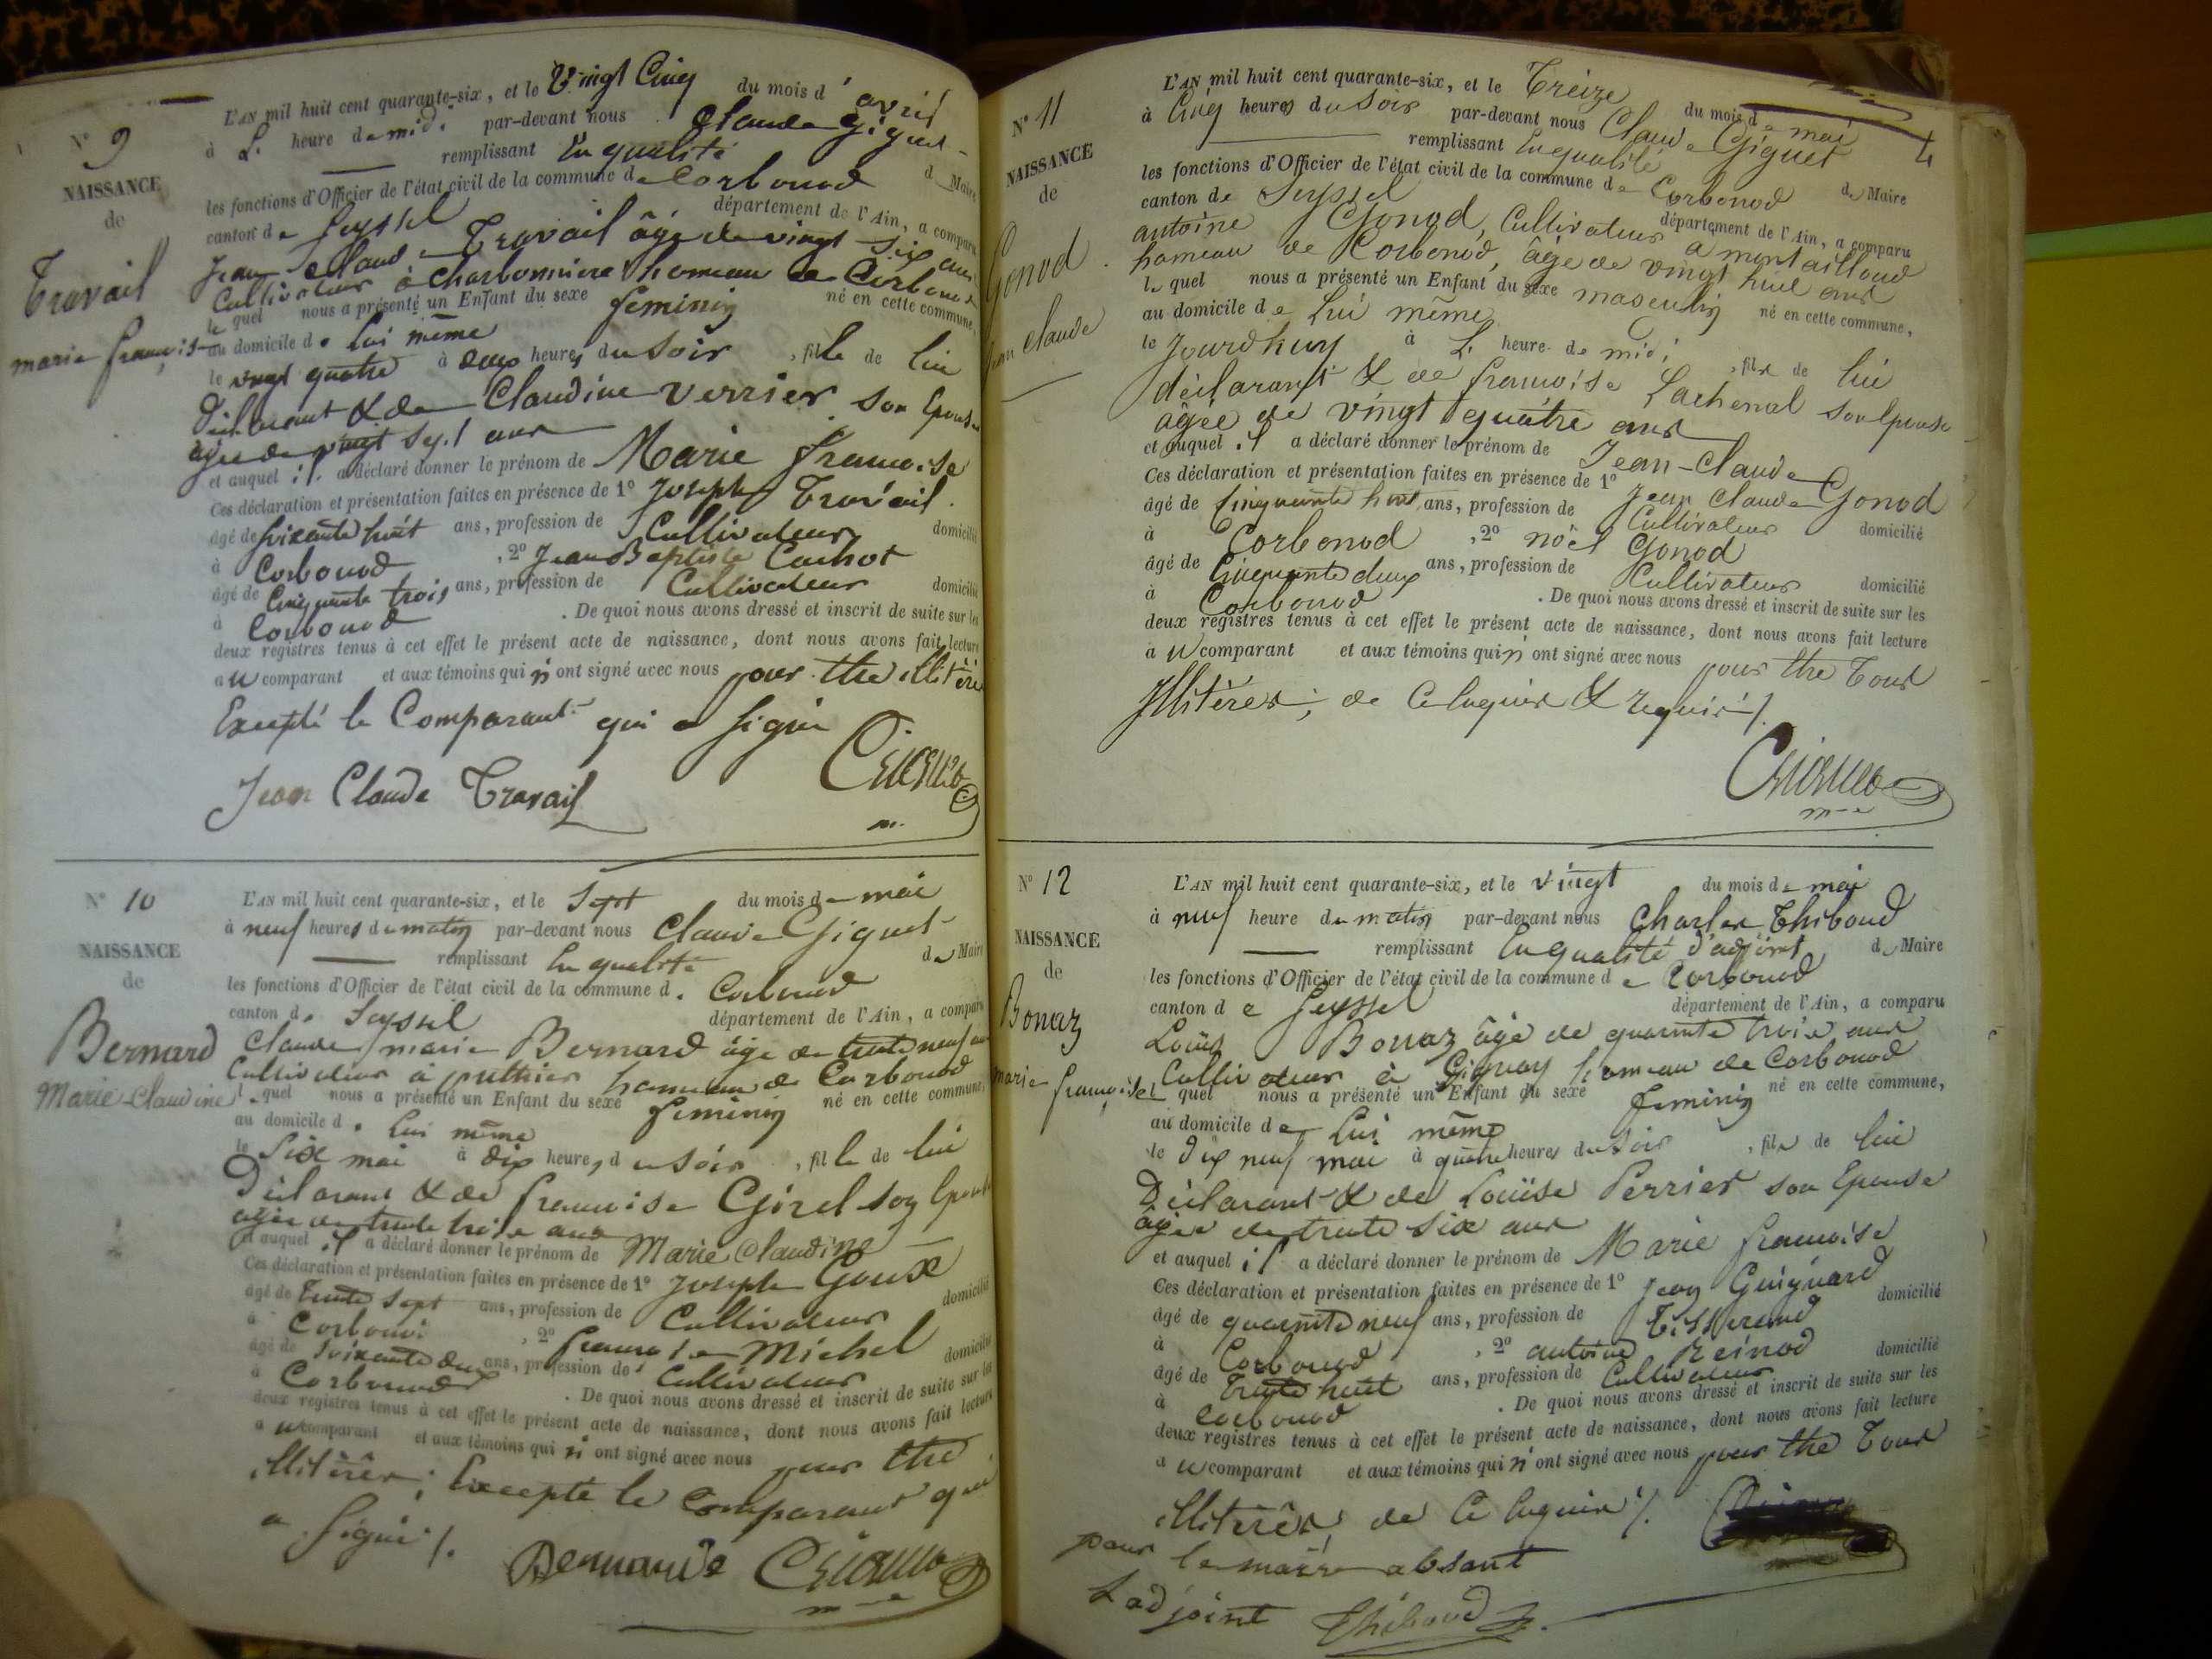 N° 9
NAISSANCE
de
Travail
marie françoise
L'AN mil huit cent quarante-six, et le Vingt Cinq du mois d'avril
à L. heure de midi par-devant nous Claude Giguet
remplissant En qualité de Maire
les fonctions d'Officier de l'état civil de la commune de Corbonod
canton de Seyssel département de l'Ain, a comparu
Jean Claude Travail âgé de vingt six ans
Cultivateur à Charbonnière hameau de Corbonod
lequel nous a présenté un Enfant du sexe feminin né en cette commune,
au domicile de lui même
le vingt quatre à deux heures du soir, fille de lui
Déclarant & de Claudine Verrier son Epouse
âgée de vingt sept ans
et auquel il a déclaré donner le prénom de Marie françoise
Ces déclaration et présentation faites en présence de 1° Joseph Travail
âgé de soixante huit ans, profession de Cultivateur domicilié
à Corbonod, 2° Jean Baptiste Cachot
âgé de Cinquante trois ans, profession de Cultivateur domicilié
à Corbonod. De quoi nous avons dressé et inscrit de suite sur les
deux registres tenus à cet effet le présent acte de naissance, dont nous avons fait lecture
au comparant et aux témoins qui n'ont signé avec nous pour être illitéré
Excepté le Comparant qui a signé
Jean Claude Travail
N° 10
NAISSANCE
de
Bernard
Marie Claudine
L'AN mil huit cent quarante-six, et le Sept du mois de mai
à neuf heures du matin par-devant nous Claude Giguet
remplissant En qualité de Maire
les fonctions d'Officier de l'état civil de la commune d. Corbonod
canton de Seyssel département de l'Ain, a comparu
Claude marie Bernard âgé de trente neuf ans
Cultivateur à puthier hameau de Corbonod
lequel nous a présenté un Enfant du sexe feminin né en cette commune,
au domicile d. lui même
le Six mai à dix heures du soir, fille de lui
Déclarant & de françoise Girel son Epouse
âgée de trente trois ans
et auquel il a déclaré donner le prénom de Marie Claudine
Ces déclaration et présentation faites en présence de 1° Joseph Goux
âgé de trente sept ans, profession de Cultivateur domicilié
à Corbonod, 2° françois Michel
âgé de soixante deux ans, profession de Cultivateur domicilié
à Corbonod. De quoi nous avons dressé et inscrit de suite sur les
deux registres tenus à cet effet le présent acte de naissance, dont nous avons fait lecture
au comparant et aux témoins qui n'ont signé avec nous pour être
illitérés; Excepté le Comparant qui
a signé /.
4
N° 11
NAISSANCE
de
Gonod
Jean Claude
L'AN mil huit cent quarante-six, et le Treize du mois de mai
à Cinq heures du soir par-devant nous Claude Giguet
remplissant En qualité de Maire
les fonctions d'Officier de l'état civil de la commune de Corbonod
canton de Seyssel département de l'Ain, a comparu
antoine Gonod, Cultivateur a montailloud
hameau de Corbonod, âgé de vingt huit ans
lequel nous a présenté un Enfant du sexe masculin né en cette commune,
au domicile de lui même
le Jourdhuy à L. heure de midi, fils de lui
déclarant & de françoise Lachenal son Epouse
âgée de vingt quatre ans
et auquel il a déclaré donner le prénom de Jean-Claude
Ces déclaration et présentation faites en présence de 1° Jean Claude Gonod
âgé de Cinquante huit ans, profession de Cultivateur domicilié
à Corbonod, 2° noël Gonod
âgé de Cinquante deux ans, profession de Cultivateur domicilié
à Corbonod. De quoi nous avons dressé et inscrit de suite sur les
deux registres tenus à cet effet le présent acte de naissance, dont nous avons fait lecture
au comparant et aux témoins qui n'ont signé avec nous pour être Tous
Illitéres; de Ce Enquis & requis /.
N° 12
NAISSANCE
de
Bonaz
marie françoise
L'AN mil huit cent quarante-six, et le vingt du mois de mai
à neuf heure du matin par-devant nous Charles Thiboud
remplissant En qualité d'adjoint de Maire
les fonctions d'Officier de l'état civil de la commune de Corbonod
canton de Seyssel département de l'Ain, a comparu
Louis Bonaz âgé de quarante trois ans
Cultivateur à Gignay hameau de Corbonod
lequel nous a présenté un Enfant du sexe feminin né en cette commune,
au domicile de lui même
le dix neuf mai à quatre heures du soir, file de lui
Déclarant & de Louïse Perrier son Epouse
âgée de trente six ans
et auquel il a déclaré donner le prénom de Marie françoise
Ces déclaration et présentation faites en présence de 1° Jean Guignard
âgé de quarante neuf ans, profession de Tisserand domicilié
à Corbonod, 2° antoine Reinod
âgé de trente huit ans, profession de Cultivateur domicilié
à Corbonod. De quoi nous avons dressé et inscrit de suite sur les
deux registres tenus à cet effet le présent acte de naissance, dont nous avons fait lecture
au comparant et aux témoins qui n'ont signé avec nous pour être Tous
illitérés, de Ce Enquis /.
pour le maire absant
L adjoint Thiboud